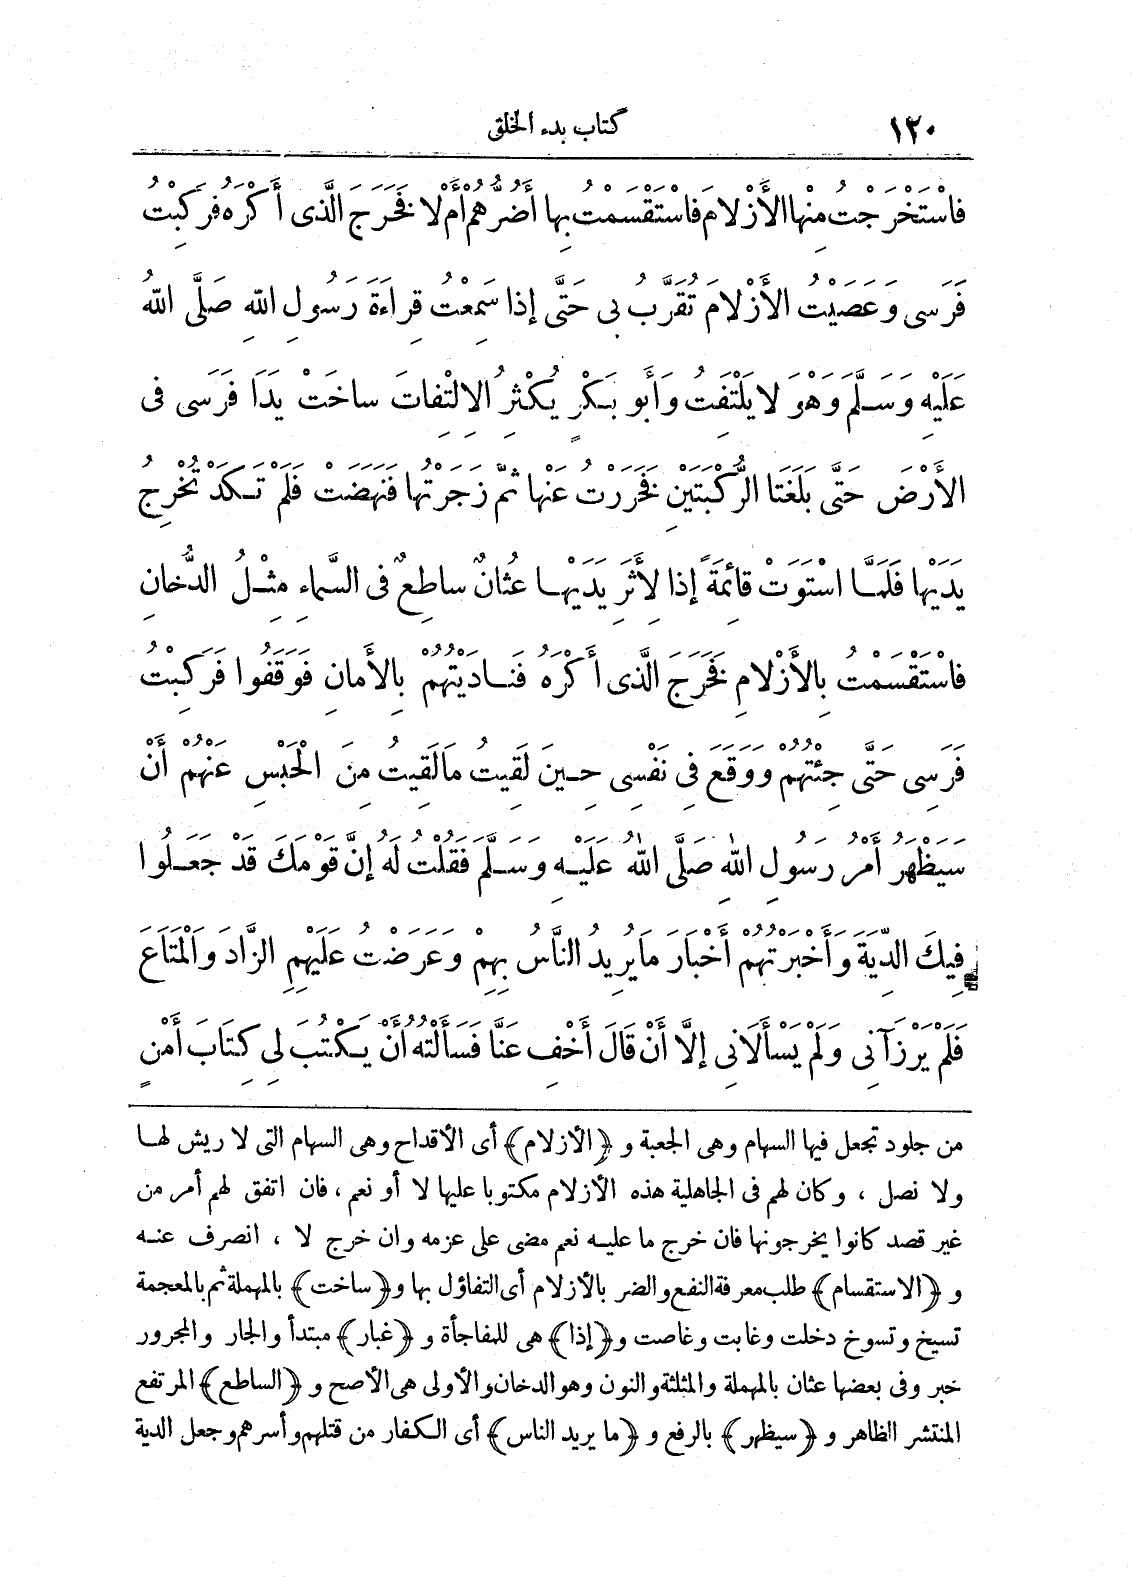 ١٢٠ كتاب بدء الخلق
فَاسْتَخْرَجْتُ مِنْهَا الأَزْلَامَ فَاسْتَقْسَمْتُ بِهَا أَضُرُّهُمْ أَمْ لَا فَخَرَجَ الَّذِى أَكْرَهُ فَرَكِبْتُ
فَرَسِى وَعَصَيْتُ الأَزْلَامَ تُقَرِّبُ بِى حَتَّى إِذَا سَمِعْتُ قِرَاءَةَ رَسُولِ اللهِ صَلَّى اللهُ
عَلَيْهِ وَسَلَّمَ وَهْوَ لَا يَلْتَفِتُ وَأَبُو بَكْرٍ يُكْثِرُ الِالْتِفَاتَ سَاخَتْ يَدَا فَرَسِى فى
الأَرْضِ حَتَّى بَلَغَتَا الرُّكْبَتَيْنِ فَخَرَرْتُ عَنْهَا ثُمَّ زَجَرْتُهَا فَنَهَضَتْ فَلَمْ تَكَدْ تُخْرِجُ
يَدَيْهَا فَلَمَّا اسْتَوَتْ قَائِمَةً إِذَا لِأَثَرِ يَدَيْهَا عُثَانٌ سَاطِعٌ فِى السَّمَاءِ مِثْلُ الدُّخَانِ
فَاسْتَقْسَمْتُ بِالأَزْلَامِ فَخَرَجَ الَّذِى أَكْرَهُ فَنَادَيْتُهُمْ بِالأَمَانِ فَوَقَفُوا فَرَكِبْتُ
فَرَسِى حَتَّى جِئْتُهُمْ وَوَقَعَ فِى نَفْسِى حِينَ لَقِيتُ مَا لَقِيتُ مِنَ الْحَبْسِ عَنْهُمْ أَنْ
سَيَظْهَرُ أَمْرُ رَسُولِ اللهِ صَلَّى اللهُ عَلَيْهِ وَسَلَّمَ فَقُلْتُ لَهُ إِنَّ قَوْمَكَ قَدْ جَعَلُوا
فِيكَ الدِّيَةَ وَأَخْبَرْتُهُمْ أَخْبَارَ مَا يُرِيدُ النَّاسُ بِهِمْ وَعَرَضْتُ عَلَيْهِمِ الزَّادَ وَالْمَتَاعَ
فَلَمْ يَرْزَآنِى وَلَمْ يَسْأَلَانِى إِلَّا أَنْ قَالَ أَخْفِ عَنَّا فَسَأَلْتُهُ أَنْ يَكْتُبَ لِى كِتَابَ أَمْنٍ
من جلود تجعل فيها السهام وهى الجعبة و ﴿الأزلام﴾ أى الأقداح وهى السهام التى لا ريش لها
ولا نصل ، وكان لهم فى الجاهلية هذه الأزلام مكتوبا عليها لا أو نعم ، فان اتفق لهم أمر من
غير قصد كانوا يخرجونها فان خرج ما عليه نعم مضى على عزمه وان خرج لا ، انصرف عنه
و ﴿الاستقسام﴾ طلب معرفة النفع والضر بالأزلام أى التفاؤل بها و﴿ساخت﴾ بالمهملة ثم بالمعجمة
تسيخ وتسوخ دخلت وغابت وغاصت و﴿إذا﴾ هى للمفاجأة و ﴿غبار﴾ مبتدأ والجار والمجرور
خبر وفى بعضها عثان بالمهملة والمثلثة والنون وهو الدخان والأولى هى الأصح و ﴿الساطع﴾ المرتفع
المنتشر الظاهر و ﴿سيظهر﴾ بالرفع و ﴿ما يريد الناس﴾ أى الكفار من قتلهم وأسرهم وجعل الدية